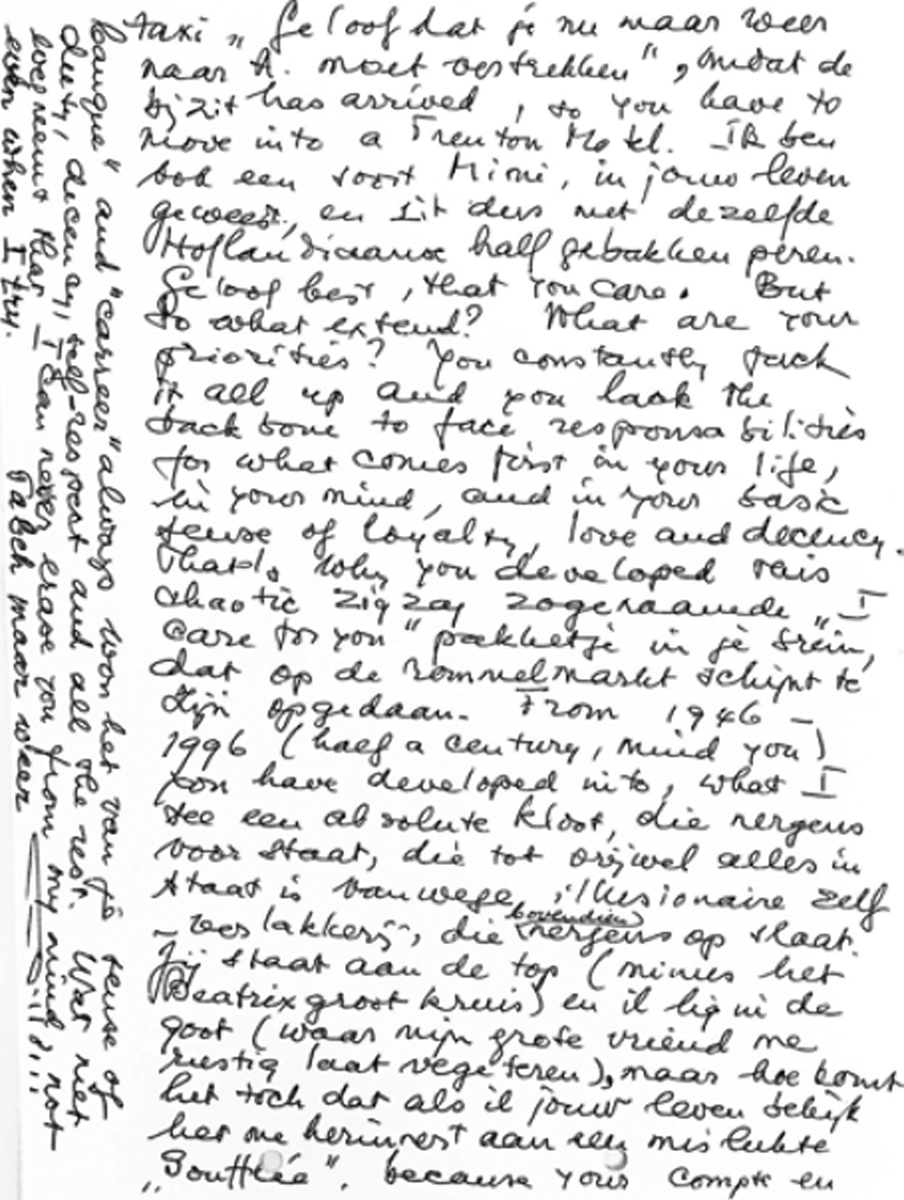 taxi „Geloof dat je nu maar weer
naar A. moet vertrekken", omdat de
bijzit has arrived, so you have to
move into a Trenton Motel. Ik ben
ook een soort Mimi, in jouw leven
geweest, en zit dus met dezelfde
Hollandiaanse half gebakken peren.
Geloof best, that you care. But
to what extend? What are your
priorities? You constantly fuck
it all up and you lack the
back bone to face responsabilities
for what comes first in your life,
in your mind, and in your basic
sense of loyalty, love and decency.
That's why you developed this
chaotic zigzag zogenaamde „I
care for you" pakketje in je brein,
dat op de rommelmarkt schijnt te
zijn opgedaan. From 1946 -
1996 (half a century, mind you)
you have developed into, what I
see een absolute kloot, die nergens
voor staat, die tot vrijwel alles in
staat is vanwege illusionaire zelf
- verlakkerij, die bovendien nergens op slaat.
Jij staat aan de top (minus het
Beatrix groot kruis) en ik lig in de
goot (waar mijn grote vriend me
rustig laat vegeteren), maar hoe komt
het toch dat als ik jouw leven bekijk
het me herinnert aan een mislukte
„Soufflée". because your compte en
banque" and "carreer" always won het van je sense of
duty, decency, self-respect and all the rest. Wat niet
wegneemt that I can never erase you from my mind, not
even when I try. Bach maar weer